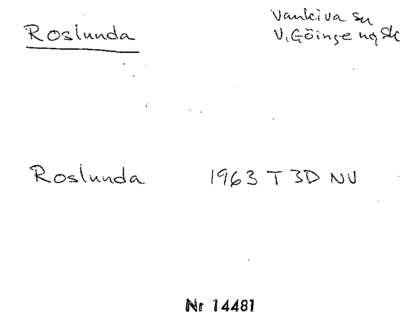 Roslunda
Vankiva sn
V. Göinge hd Sk
Roslunda 1963 T 3D NV
Nr 14481